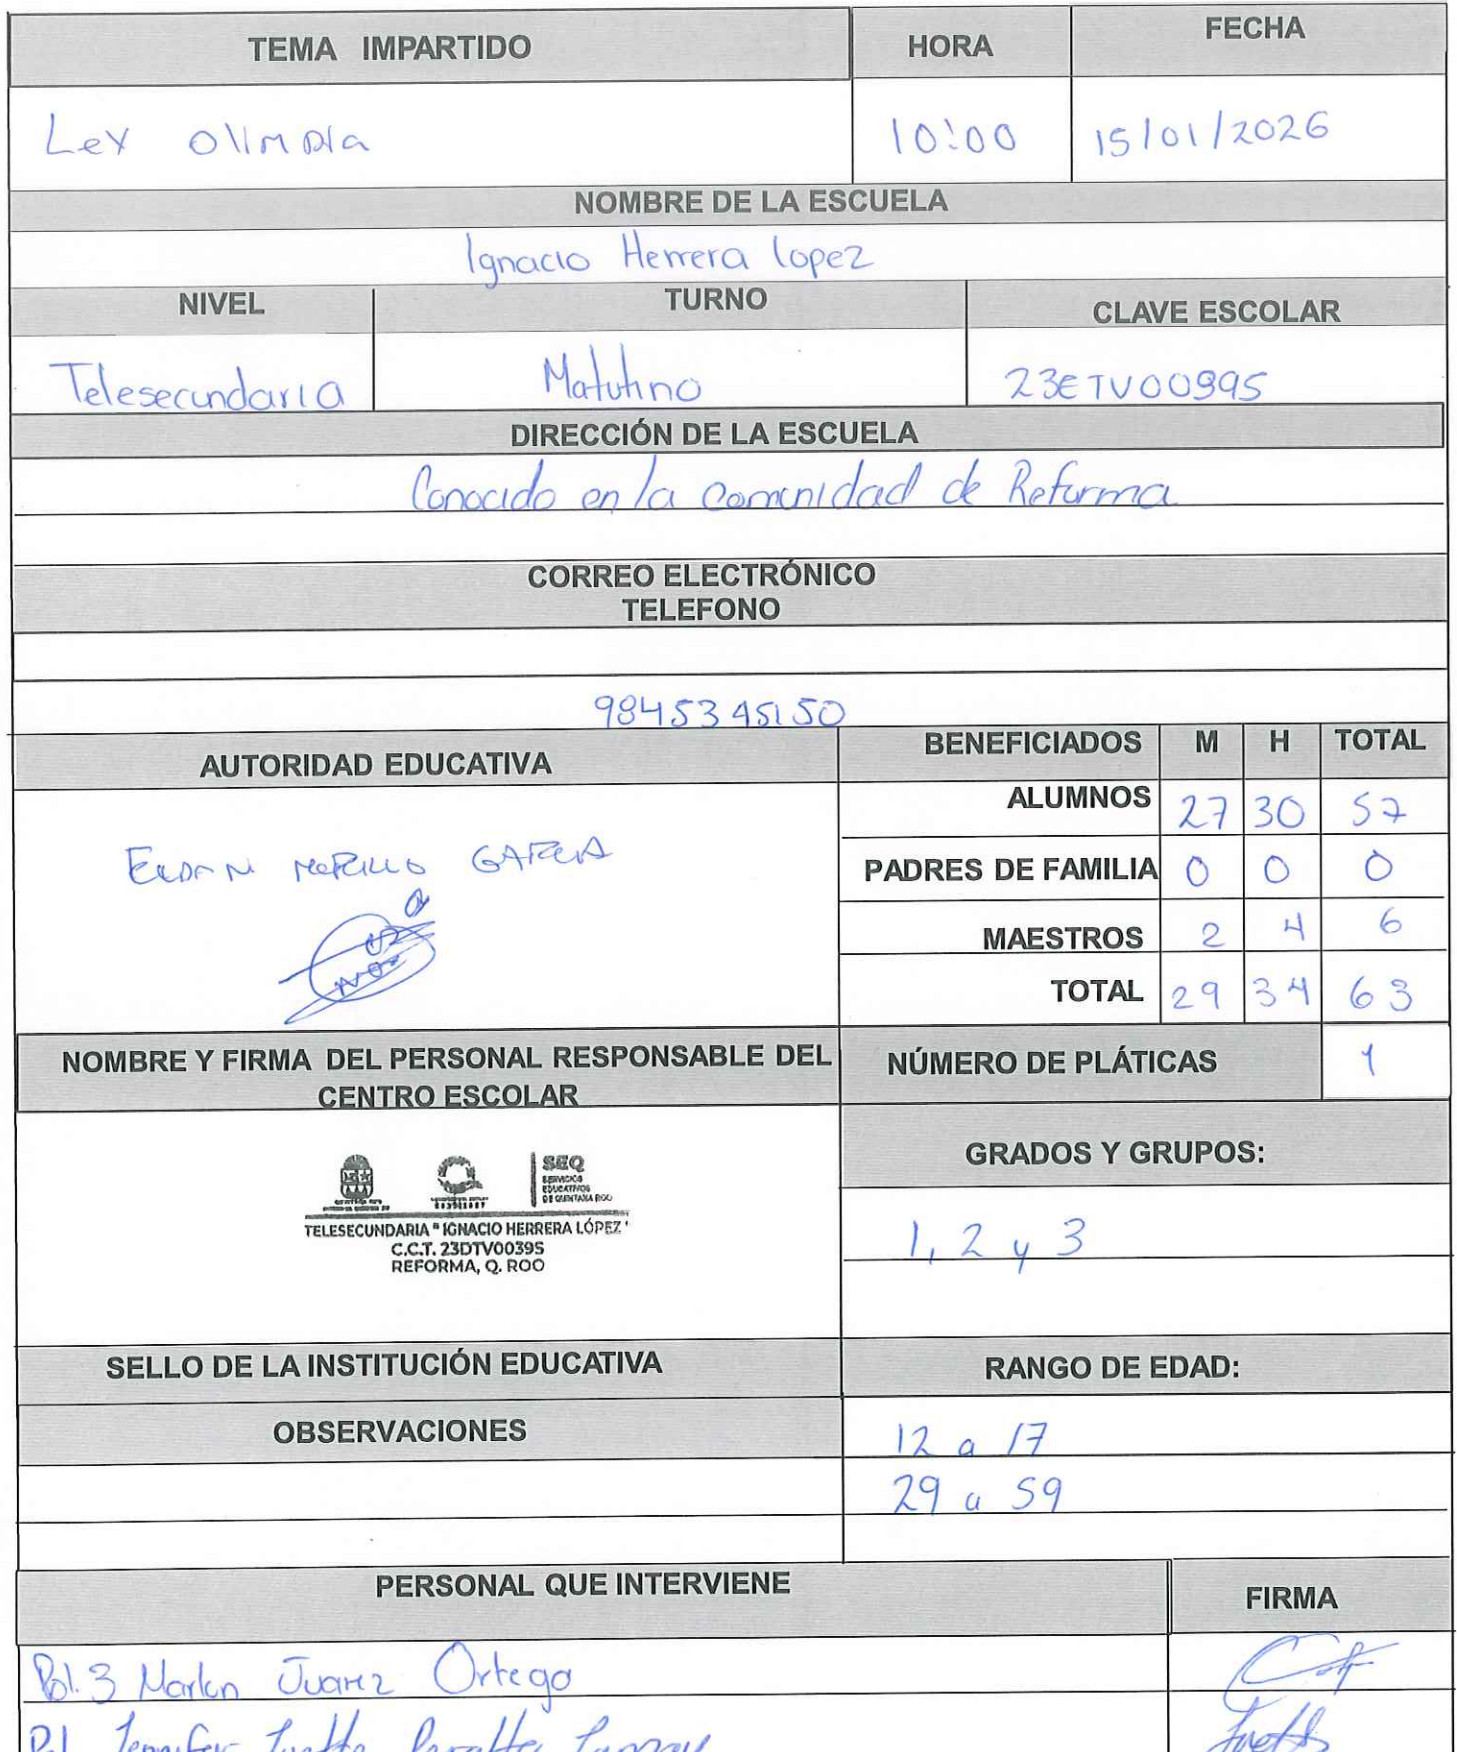 TEMA IMPARTIDO HORA FECHA
Ley Olimpia 10:00 15/01/2026
NOMBRE DE LA ESCUELA
Ignacio Herrera lopez
NIVEL TURNO CLAVE ESCOLAR
Telesecundaria Matutino 23ETV00395
DIRECCIÓN DE LA ESCUELA
Conocido en la comunidad de Reforma
CORREO ELECTRÓNICO
TELEFONO
9845345150
AUTORIDAD EDUCATIVA BENEFICIADOS M H TOTAL
ALUMNOS 27 30 57
GARCIA
PADRES DE FAMILIA 0 0 0
MAESTROS 2 4 6
TOTAL 29 34 63
NOMBRE Y FIRMA DEL PERSONAL RESPONSABLE DEL
CENTRO ESCOLAR
NÚMERO DE PLÁTICAS 1
GRADOS Y GRUPOS:
SEQ
SERVICIOS
EDUCATIVOS
DE QUINTANA ROO
TELESECUNDARIA "IGNACIO HERRERA LÓPEZ"
C.C.T. 23DTV0039S
REFORMA, Q. ROO
1, 2 y 3
SELLO DE LA INSTITUCIÓN EDUCATIVA RANGO DE EDAD:
OBSERVACIONES
12 a 17
29 a 59
PERSONAL QUE INTERVIENE FIRMA
Pol. 3 Marlon Juarez Ortega
Pol. Jennifer Ivette Peralta